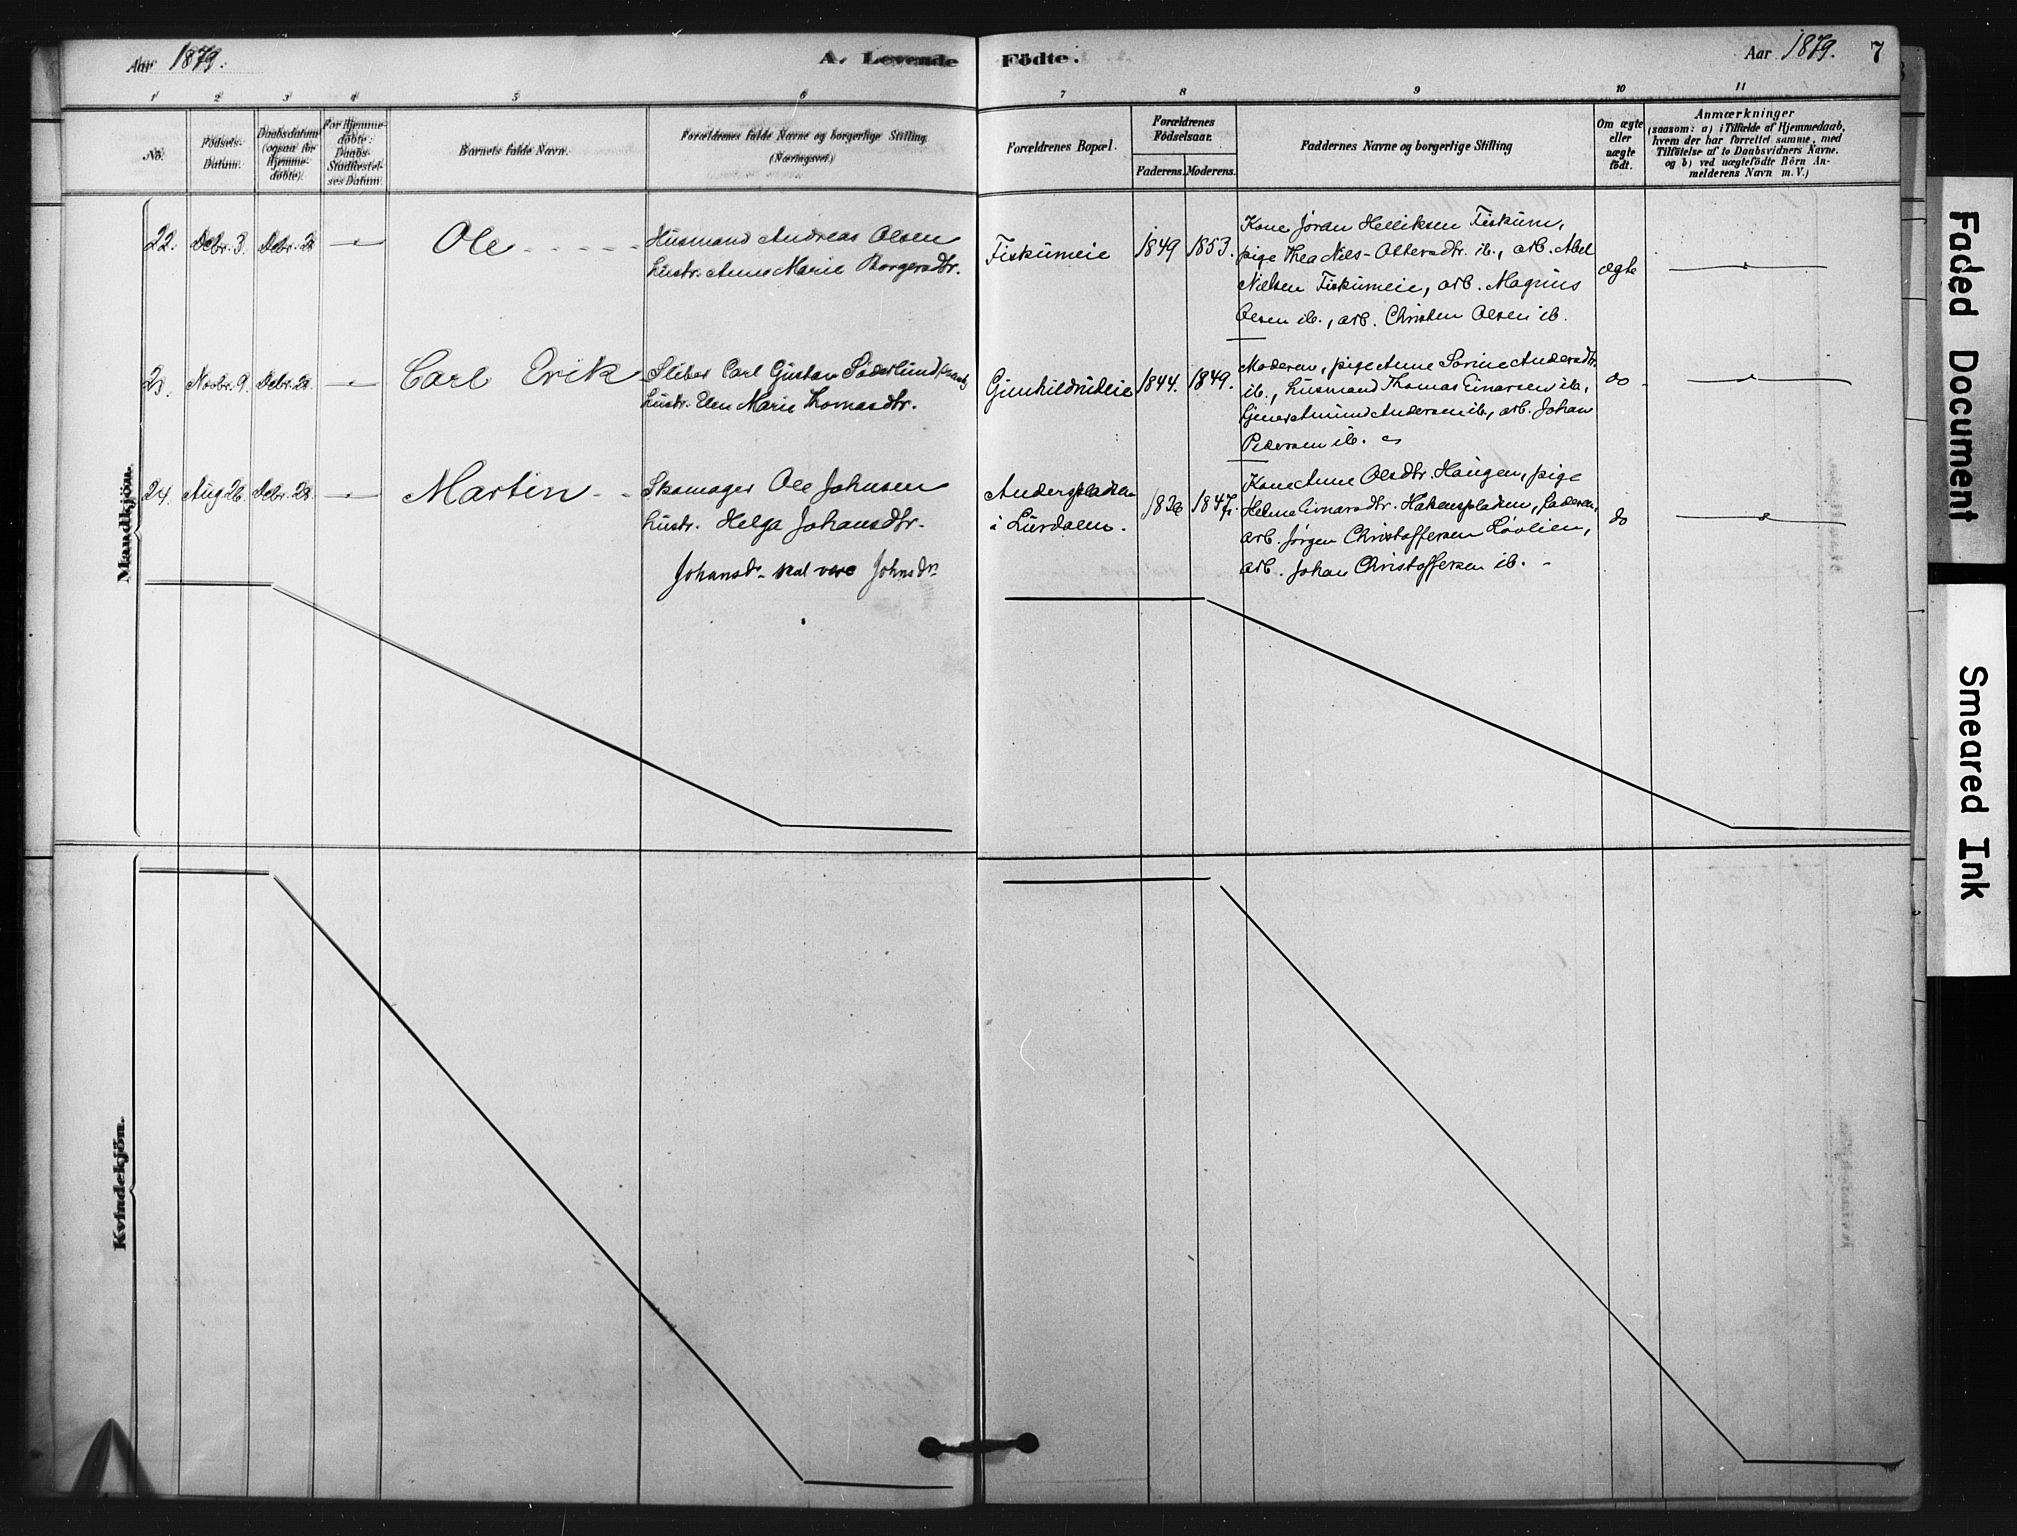 Aar 1879.
A. Levende Födte.
Aar 1879. 7
1 2 3 4 5 6 7 8 9 10 11
No.
Födsels-
Datum.
Daabsdatum
(ogsaa for
Hjemme-
döbte).
For Hjemme-
döbte:
Daabs-
Stadfæstel-
ses Datum.
Barnets fulde Navn.
Forældrenes fulde Navne og borgerlige Stilling
(Næringsvei)
Forældrenes Bopæl.
Forældrenes
Födselsaar.
Faderens. Moderens.
Faddernes Navne og borgerlige Stilling
Om ægte
eller
uægte
födt.
Anmærkninger
(saasom: a) i Tilfælde af Hjemmedaab,
hvem der har forrettet samme, med
Tilföielse af to Daabsvidners Navne.
og b) ved uægtefödte Börn An-
melderens Navn m. V.)
Mandkjön.
22. Decbr. 3. Decbr. 28 Ole
Husmand Andreas Olsen
hustr. Anne Marie Borgersdtr.
Fiskumeie 1849 1853.
Kone Jöran Helliksen Fiskum,
pige Thea Niels-Ottersdtr. ib., arb. Abel
Nielsen Fiskumeie, arb. Magnus
Olsen ib., arb. Christen Olsen ib.
ægte
23. Novbr. 9. Decbr. 28. Carl Erik
Sliber Carl Gustav Söderlund
hustr. Elen Marie Thomasdtr.
Gunhildrudeie 1844. 1849.
Moderen, pige Anne Sorine Andersdtr.
ib., husmand Thomas Einarsen ib.,
tjener Amund Andersen ib., arb. Johan
Pedersen ib.
do
24. Aug 26. Decbr. 28. Martin
Skomager Ole Johnsen
hustr. Helga Johansdtr.
Johansdr. skal være Johnsdr.
Anderspladsen
i Lurdalen. 1836 1847
Kone Anne Olsdtr. Haugen, pige
Helene Einarsdtr. Hakenspladsen, faderen,
arb. Jörgen Christoffersen Lövlien,
arb. Johan Christoffersen ib.
do
Kvindekjön.
Faded Document
Smeared Ink